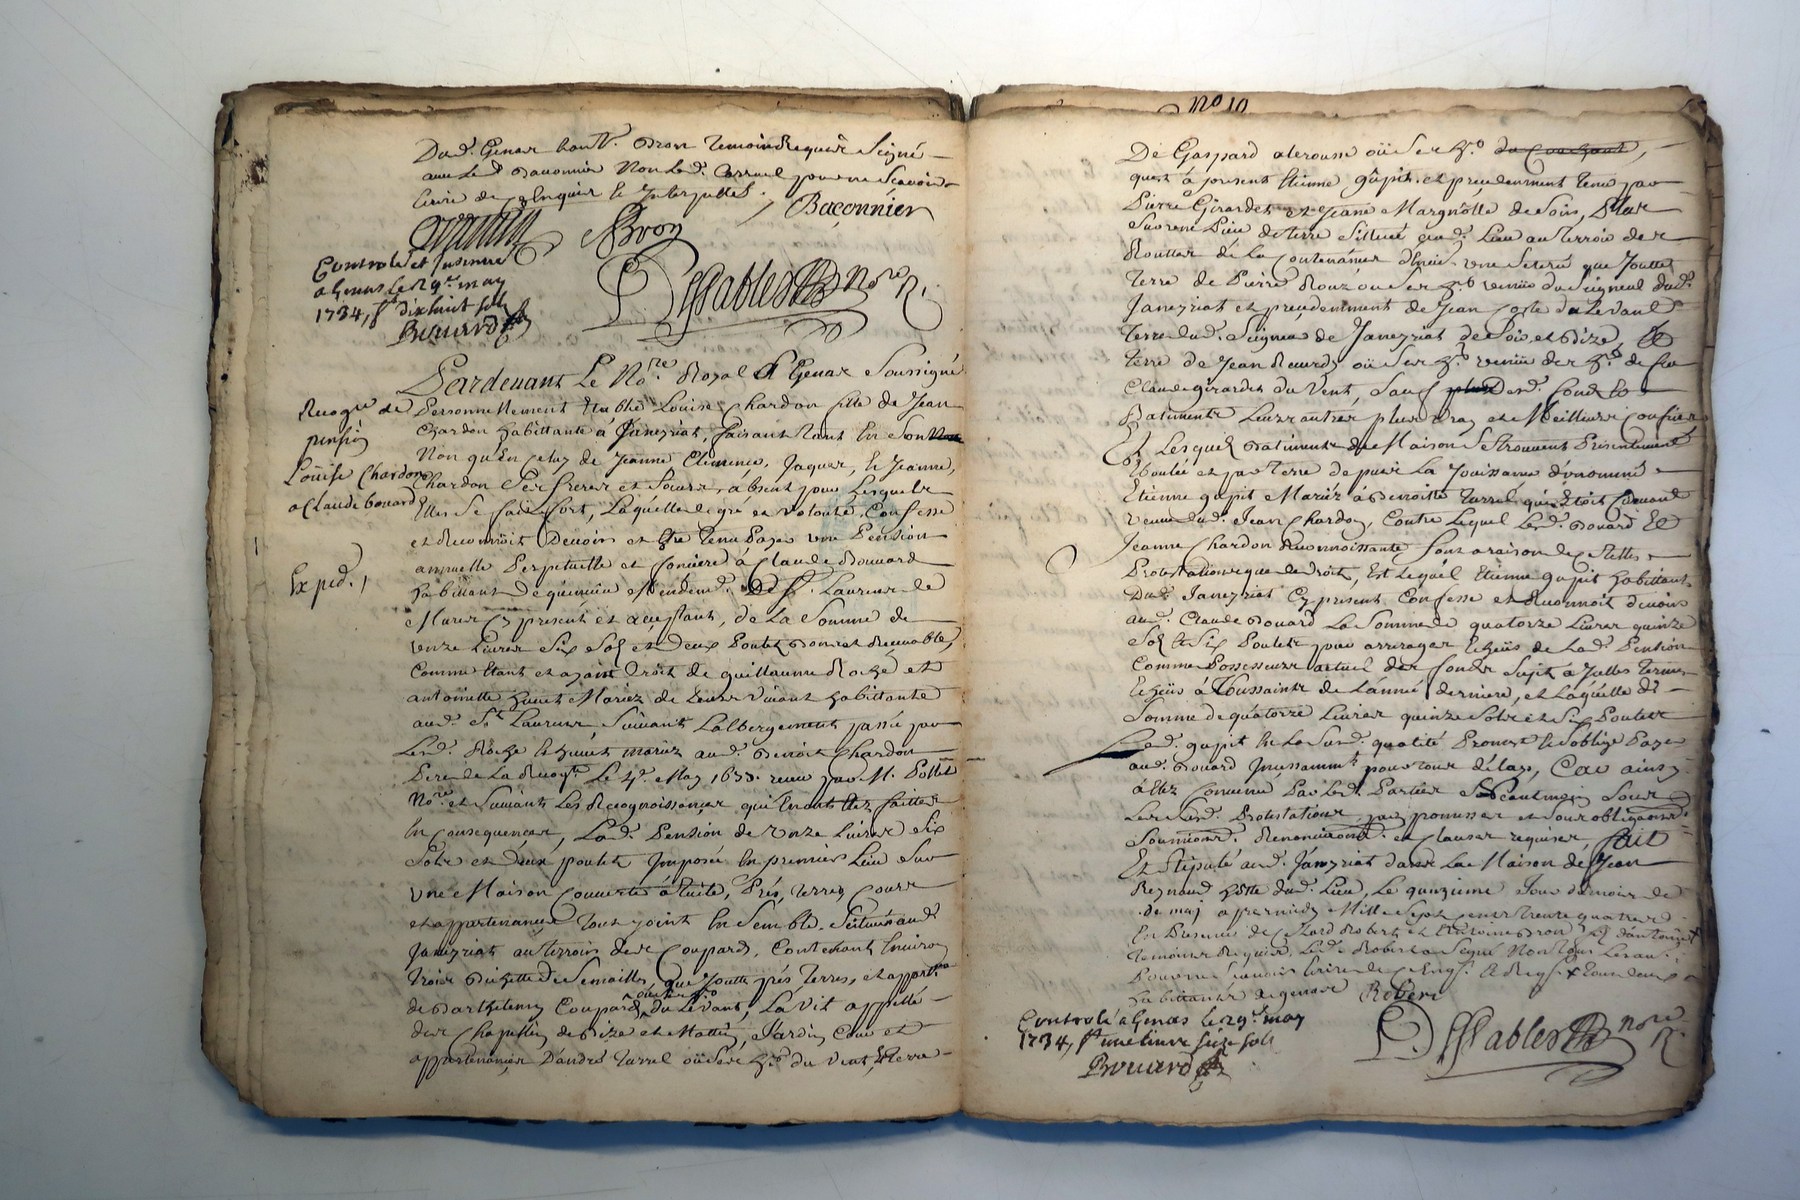 Dud. Genas hont. Bron temoin Requis Signé
avec led Baconnier Non led. Carruel pour ne Scavoir
Ecrire de ce Enquis et Interpellé.
Baconnier
Bron
Controlé et Insinué
a Genas le 29e. may
1734, st dixhuit sols
Bouard
DessablesNore R.
Pardevant Le Nore. Royal de Genas Soussigné
Personnellement Etablie Louise Chardon fille de Jean
Recogn de
pension
Louïse Chardon
a Claude bouard
Chardon habittante à Janeyriat, faisant tant En Son
Nom qu'En celuy de Jeanne Clemence, Jaques, Et Jeanne,
Chardon Ses freres et Sœurs, absent pour Lesquels
Elles Se fait fort, Laquelle de gré et volonté, Confesse
et Reconnoit Devoir et Etre tenu Payer une Pension
annuelle Perpetuelle et fonciere à Claude Bouvard
Expéd. 1
habittant De St. Laurens de
Mures Cy present et acceptant, de La Somme de
onze Livres Six Sols et Deux Poulets bons et Recevables,
Comme Etant et ayant Droit de guillaume Roche et
antoinette humet Mariez de Leurs vivant habittants
aud. St. Laurens, Suivant Lalbergement passé par
Lesd. Roche Et humet mariez aud. Benoit Chardon
Pere de La Recogte Le 4e. May 1633. receu par M. Pollet
Nore. et Suivant Les Recognoissances qui En ont Etez faittes
En Consequences, Lad. Pension de onze Livres Six
Sols et Deux poulets Imposée En premier Lieu Sur
une Maison Couverte à tuile, Prés, terres Cours
et appartenances tout joint En Semble, Scituée aud.
Janeyriat au terroir des Coupard, Contenant Environ
trois Bichettes de Semailles, que Joutte prés terres, et appart.
de Barthelemy Coupard du Levant, La Vit appellé
des Chapelles de Bize et Mattin, Jardin Cour et
appartenances D'andré Turrel ou Ses hrs du Vent, Et terre
No 10
De Gaspard aleroume où Ses hrs. du Couchant,
quest à present Etienne qupit et precedemment tenu par
Pierre Girardet et Jeane Margnolle de Soir, Plus
Sur une Piece de terre Scittuée aud. Lieu au terroir des
Routtes de La Contenance d'Environ une Seteré que Joutte
terre de Pierre Rouz ou Ses hrs venüe du Seigneur Dud.
Janeyriat et precedemment de Jean Coste du Levant
terre dud. Seigneur de Janeyriat de Soir et Bize, Et
terre de Jean Reurdy où Ses hrs. venüe des hrs de feu
Claude girardet du Vent, Sauf desd. Fonds Et
Batiments Leurs autres plus vray et Meilleurs Confins
Et Lesquels Batiments de Maison Se trouvent Presentement
Eboulée et par terre depuis La Jouissance dynommé
Etienne qupit Mariéz à Benoitte Turrel qui Etoit devant
veuve dud. Jean Chardon, Contre Lequel Led. Bouard Et
Jeanne Chardon Reconnoissante font a raison de Celles
Protestations que de Droit, Est Lequel Etienne qupit habittant
Dud. Janeyriat Cy present Confesse et Reconnoit devoir
aud. Claude Bouard La Somme de quatorze Livres quinze
Sols Et Six Poulets pour arrerages Echeüs de Lad. Pension
Comme Possesseur actuel des fonds Sujets à Jcelles termes
Echeüs à Toussaints de L'année derniere, et Laquelle de
Somme de quatorze Livres quinze Sols et Six Poulets
Led. qupit En La Susd. qualité Promet Et S'oblige Payer
aud. Bouard Jncessamment pour tous délays, Car ainsy
à Etez Convenu Par Les d. Parties
Leurs Susd. Protestations, par promesses et Sous obligations
Soumissions. Renonciations. et Clauses requises, fait
Et Stipulé aud. Janeyriat dans La Maison de Jean
Reynaud hôtte dud. Lieu, Le quinzieme Jour du mois de
de may apres midy Mille Sept Cent trente quatre
En Presence de Robert et Bron
temoins Requis, Led. Robert a Signé Non Les autres
Pour ne Scavoir Ecrire de ce Enq. & Reqs. tous deux
habittants de genas Robert
Controlé a Genas le 29e. may
1734, st une livre seize sols
Bouard
DessablesNore R.